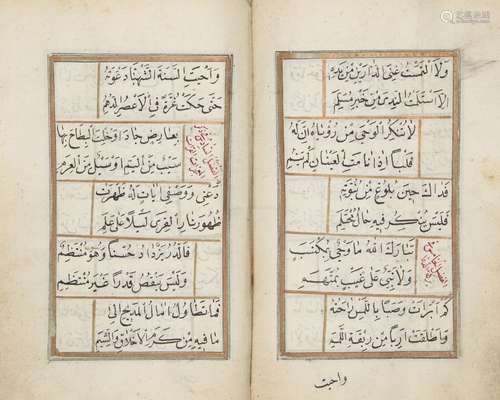 ولا التمست غنى الدارين من يده
الا استلمت الندى من خير مستلم
لا تنكر الوحي من رؤياه ان له
قلبا اذا نامت العينان لم ينم
فذاك حين بلوغ من نبوته
فليس ينكر فيه حال محتلم
تبارك الله ما وحي بمكتسب
ولا نبي على غيب بمتهم
كم ابرات وصبا باللمس راحته
واطلقت اربا من ربقة اللمم
واحيت
واحيت السنة الشهباء دعوته
حتى حكت غرة في الاعصر الدهم
بعارض جاد او خلت البطاح بها
سيب من اليم او سيل من العرم
دعني ووصفي ايات له ظهرت
ظهور نار القرى ليلا على علم
فالدر يزداد حسنا وهو منتظم
وليس ينقص قدرا غير منتظم
فما تطاول امال المديح الى
ما فيه من كرم الاخلاق والشيم